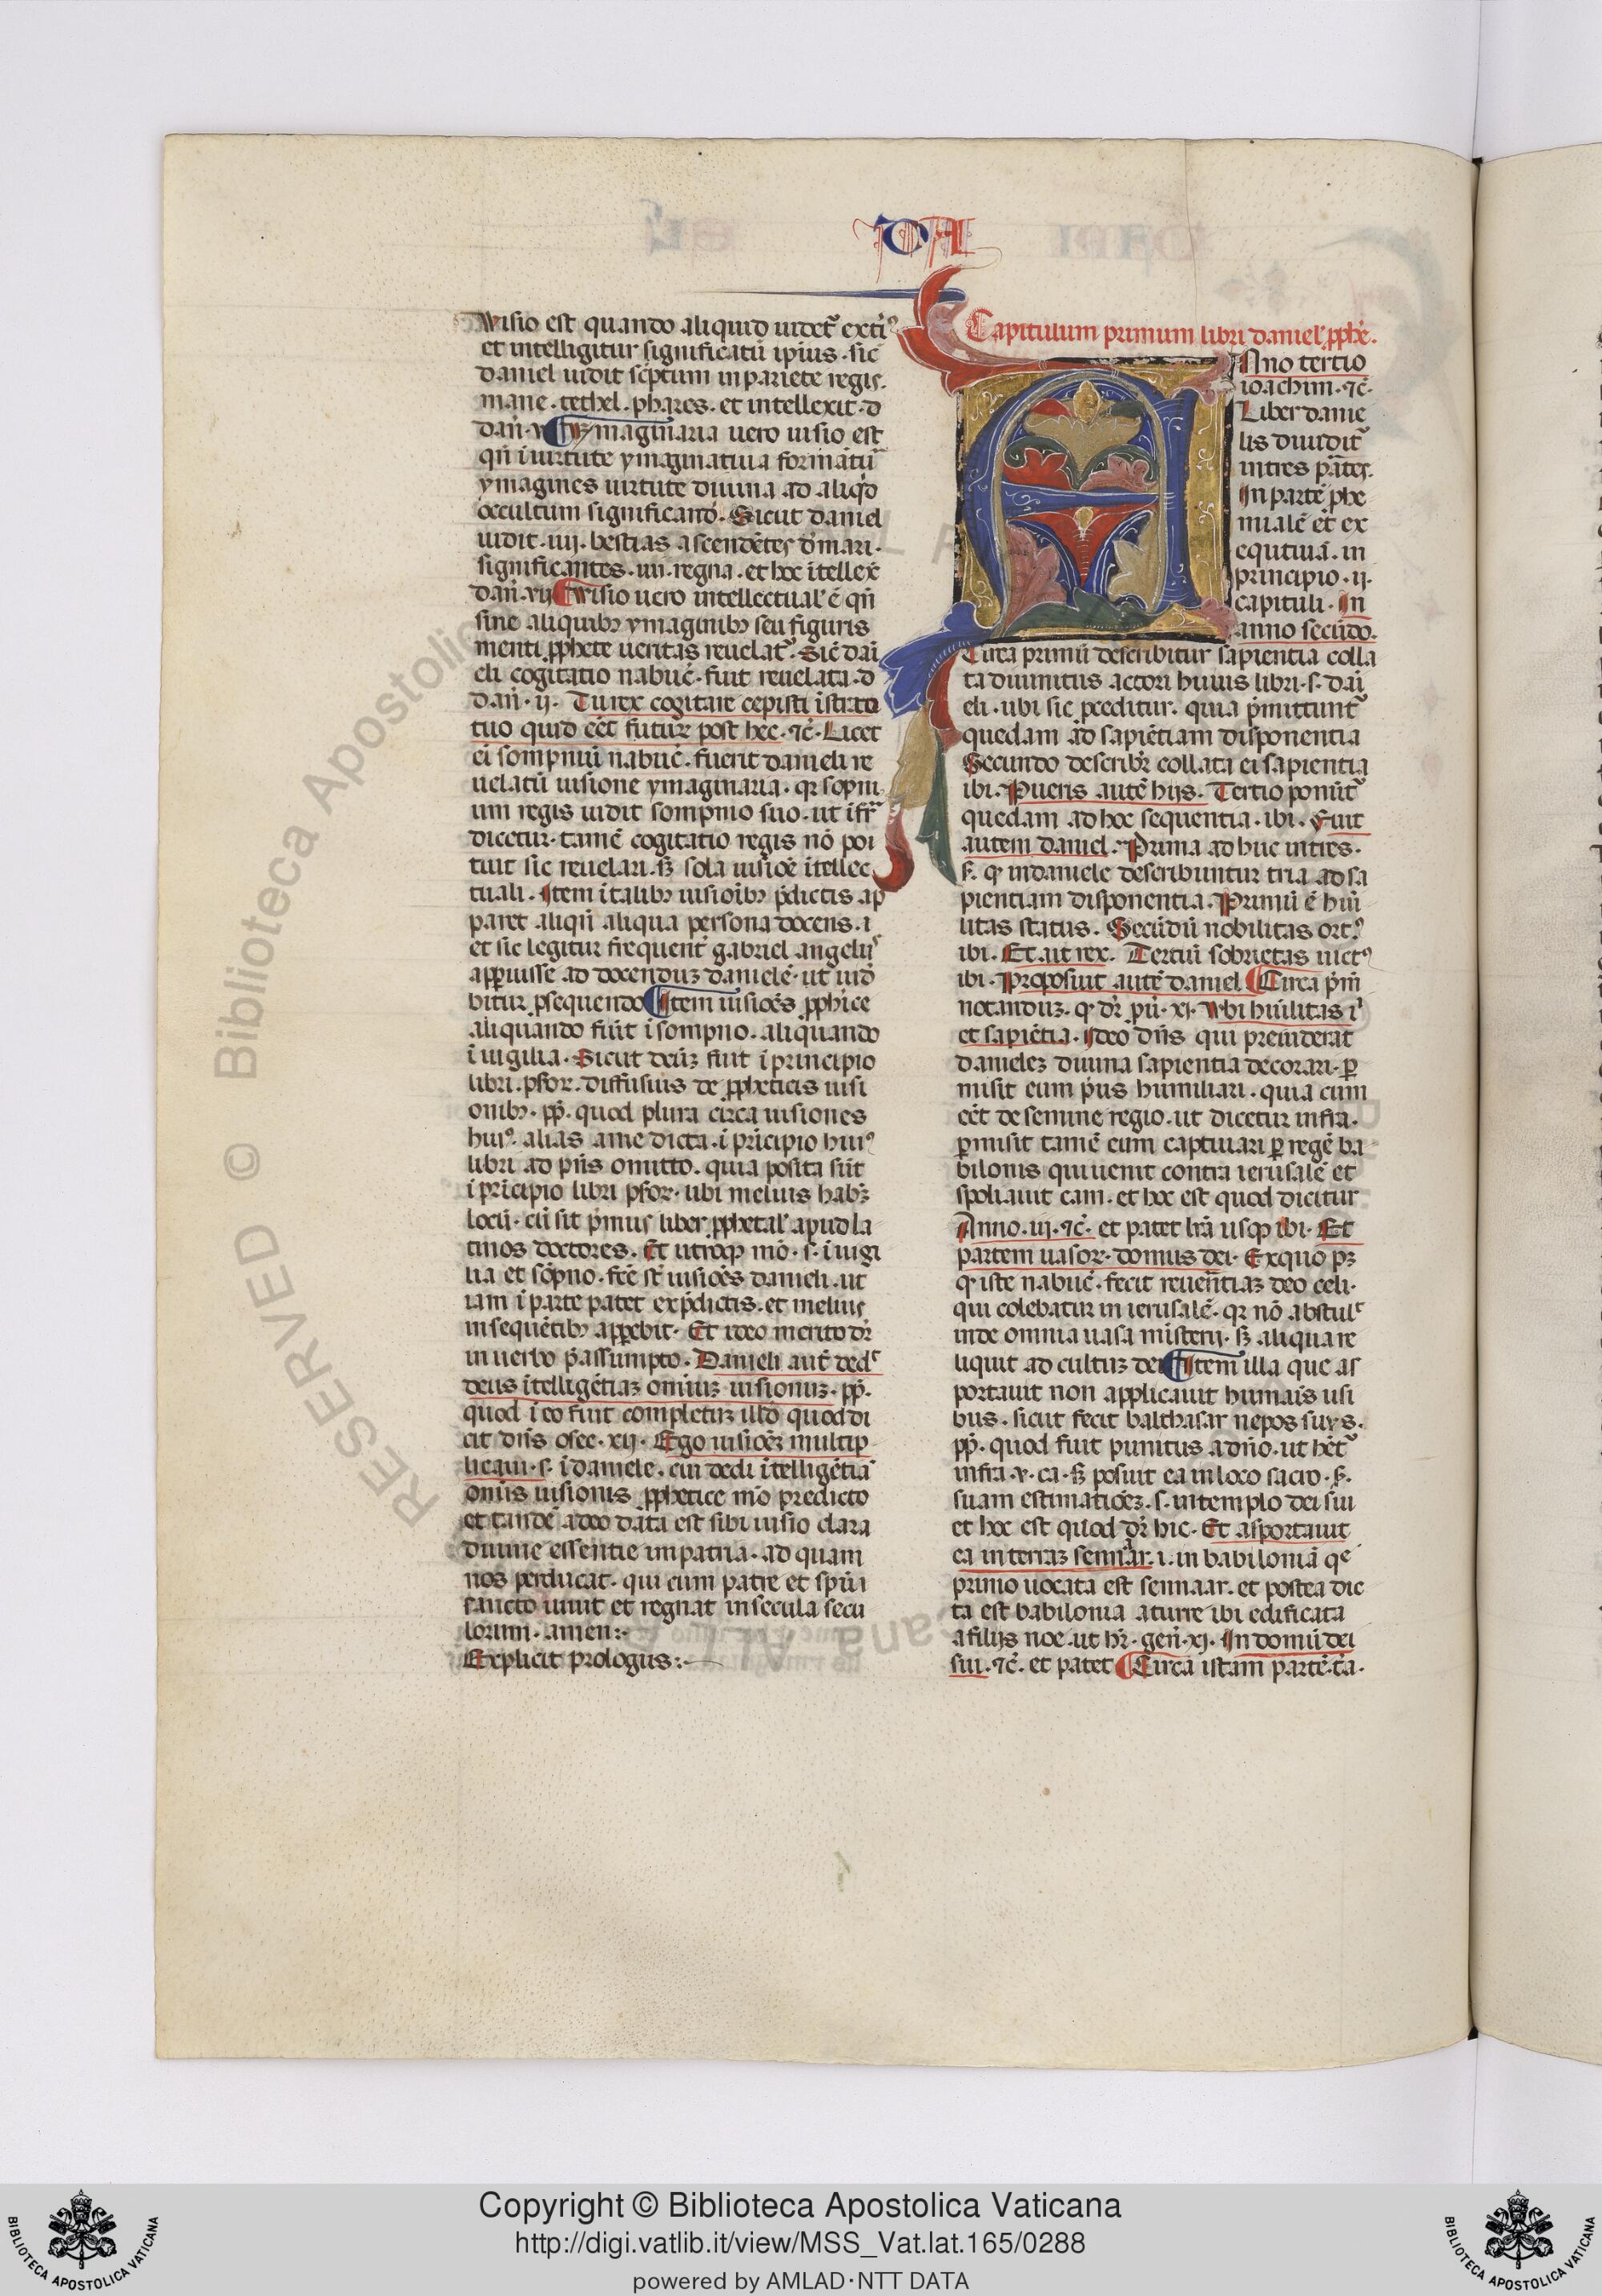 DA
Visio est quando aliquid uidet᷑ exteri᷒
et intelligitur significatū ip̄ius · sic
daniel uidit sc̄ptum in pariete regis.
mane · techel · phares · et intellexit · d
dañ · v ¶ Ymaginaria uero uisio est
qñ ī uirtute ymaginatiua formātur̄
ymagines uirtute diuina ad aliq̄d
occultum significand̄. Sicut daniel
uidit · iiij · bestias ascendētes d̄ mari ·
significantes · iiii · regna · et hoc ītellex̄
dañ · vij ¶ Visio uero intellectual' ē qñ
sine aliquibꝫ ymaginibꝫ seu figuris
menti ꝓphete ueritas reuelat᷑. Sic̄ dañ
eli cogitatio nabuc̄ · fuit reuelata · d
dañ · ij · Tu rex cogitare cepisti ī strato
tuo quid eēt futurꝫ post hec · ⁊c̄ · Licet
ei sompniū nabuc̄ · fuerit danieli re
uelatū uisione ymaginaria · qꝛ sopni
um regis uidit sompnio suo · ut īfrᵃ
dicetur · tamē cogitatio regis nō poi
tuit sic reuelari · sꝫ sola uisiōe ītellec
tuali · Item ī talibꝫ uisioībꝫ p̄dictis ap
paret aliqñ aliqua persona docens · i
et sic legitur frequent̄ gabriel angelū
apꝑuisse ad docenduꝫ danielē · ut uid̄
bitur ꝓsequendo ¶ Item uisiōes ꝓphīce
aliquando fiūt ī sompno · aliquando
ī uigilia · Sicut dc̄uꝫ fuit ī principio
libri · psoꝝ · diffusius de ꝓpheticis uisi
onibꝫ · ꝓp̄ · quod plura circa uisiones
hui᷒ · alias a me dicta · ī p̄ncipio hui᷒
libri ad p̄ns omitto · quia posita sūt
ī p̄ncipio libri psoꝝ · ubi melius habꝫ
locū · cū sit p̄mus liber ꝓphetal' apud la
tinos doctores. Et utroqꝫ mō · s · ī uigi
lia et sōpno · fcē st̄ uisiōes danieli · ut
iam ī parte patet ex p̄dictis · et melius
in sequētibꝫ apꝑebit · Et ideo merito dr̄
in uerbo p̄assumpto · Danieli aut̄ ded᷑
deus ītelligētiaꝫ omniuꝫ uisionuꝫ · ꝓp̄.
quod ī eo fuit completuꝫ illd̄ quod di
cit dn̄s osee · xij · Ego uisiōeꝫ multip
licaui · s · ī daniele · cui dedi ītelligētiā
omīs uisionis ꝓphetice mō predicto
et tandē adeo data est sibi uisio clara
diuine essentie in patria · ad quam
nos perducat · qui cum patre et sp̄u i
sancto uiuit et regnat in secula secu
lorum · amen :·
Explicit prologus :·
Capitulum primum libri daniel' ꝓphē.
Anno tertio
ioachim · ⁊c̄ ·
Liber danie
lis diuidit᷑
in tres p̄artes.
In partē phe
mialē et ex
equtiuā · in
principio · ij ·
capituli · In
anno secūdo.
Circa primū describitur sapientia colla
ta diuinitus actori huius libri · s · dañ
eli · ubi sic ꝓceditur · quia p̄mittunt᷑
quedam ad sapiētiam disponentia
Secundo describit᷑ collata ei sapientia
ibi · Pueris autē hijs. Tertio ponūt᷑
quedam ad hoc sequentia · ibi · Fuit
autem daniel. Prima ad huc in tres ·
s̄. qꝛ in daniele describuntur tria ad sa
pientiam disponentia. Primū ē hūi
litas status. Secūdū nobilitas ort᷒
ibi · Et ait rex. Tertiū sobrietas uict᷒
ibi · Proposuit autē daniel ¶ Circa p̄mū
notanduꝫ · qꝛ dr̄ p̄ū · xj · Vbi hūilitas i᷑
et sapiētia · Ideo dn̄s qui preuiderat
danieleꝫ diuina sapientia decorari · ꝑ
misit eum p̄us humiliari · quia cum
eēt de semine regio · ut dicetur infra ·
ꝑmisit tamē eum captiuari ꝑ regē ba
bilonis qui uenit contra ierusalē et
spoliauit eam · et hoc est quod dicitur
Anno · iij · ⁊c̄ · et patet lr̄a usqꝫ ibi · Et
partem uasoꝝ · domus dei · Ex quo pꝫ
qꝛ iste nabuc̄ · fecit reuerētiaꝫ deo celi ·
qui colebatur in ierusalē · qꝛ nō abstul᷑
inde omnia uasa misterij · sꝫ aliqua re
liquit ad cultuꝫ dei ¶ Item illa que as
portauit non applicauit humaīs usi
bus · sicut fecit balthasar nepos suus ·
ꝓp̄ · quod fuit punitus a dn̄o · ut hēt᷑
infra · v · ca · sꝫ posuit ea in loco sacro · s̄.
suam estimatiōeꝫ · s · in templo dei sui
et hoc est quod dr̄ hic · Et asportauit
ea in terraꝫ sennar · i · in babiloniā qᵉ
primo uocata est sennaar · et postea dic
ta est babilonia a turre ibi edificata
a filijs noe · ut hr̄ · geñ · xj · In domū dei
sui · ⁊c̄ · et patet ¶ Circa istam partē · tā ·
RESERVED © Biblioteca Apostolica
Copyright © Biblioteca Apostolica Vaticana
http://digi.vatlib.it/view/MSS_Vat.lat.165/0288
powered by AMLAD·NTT DATA
BIBLIOTECA APOSTOLICA VATICANA
BIBLIOTECA APOSTOLICA VATICANA